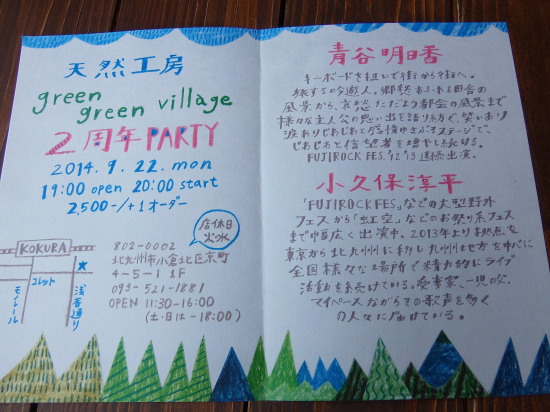 天然工房
green
green village
2周年PARTY
2014.9.22.mon
19:00 open 20:00 start
2,500-/+1オーダー
店休日
火水
KOKURA
コレット
モノレール
浅香通り
802-0002
北九州市小倉北区京町
4-5-1 1F
093-521-1881
OPEN 11:30-16:00
(土・日は-18:00)
青谷明日香
キーボードを担いで街から街へ。
旅するうた遊人。郷愁あふれる田舎の
風景から、哀愁ただよう都会の風景まで
様々な主人公の思い出を語り紡ぐ、笑いあり
涙ありじわじわと感情ゆさぶるステージで、
じわじわと信望者を増やし続ける。
FUJIROCK FES.'12'13 連続出演。
小久保淳平
「FUJIROCKFES」などの大型野外
フェスから「虹空」などのお祭り系フェス
まで幅広く出演中。2013年より拠点を
東京から北九州に移し九州地方を中心に
全国様々な場所で精力的にライブ
活動を続けている。愛妻家、一児の父。
マイペースながらその歌声を多く
の人々に届けている。